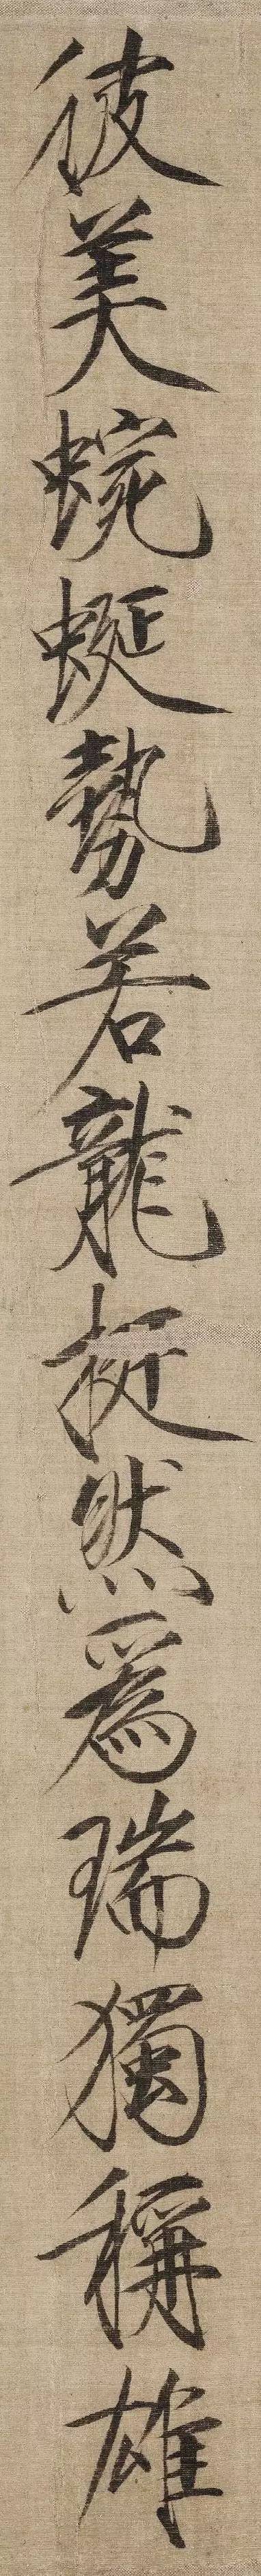 彼美蜿蜒勢若龍挺然爲瑞獨稱雄